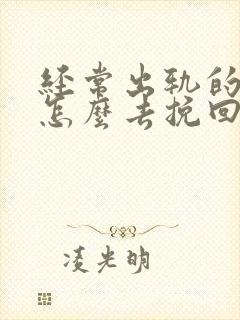 经常出轨的
怎麼去挽回
凌光明